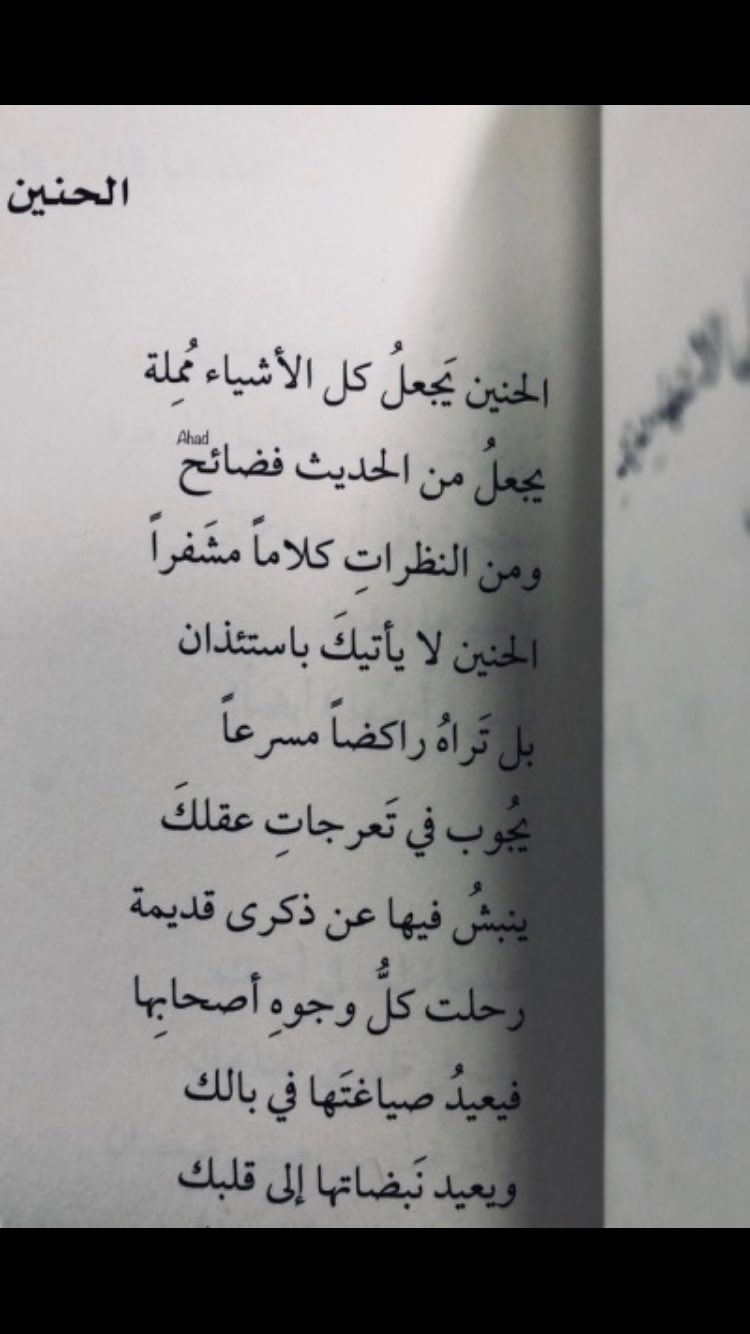 الحنين
الحنين يَجعلُ كل الأشياء مُملِة
Ahad
يجعلُ من الحديث فضائح
ومن النظراتِ كلاماً مشَفراً
الحنين لا يأتيكَ باستئذان
بل تَراهُ راكضاً مسرعاً
يجُوب في تَعرجاتِ عقلكَ
ينبشُ فيها عن ذكرى قديمة
رحلت كلُّ وجوهِ أصحابِها
فيعيدُ صياغتَها في بالك
ويعيد نَبضاتها إلى قلبك